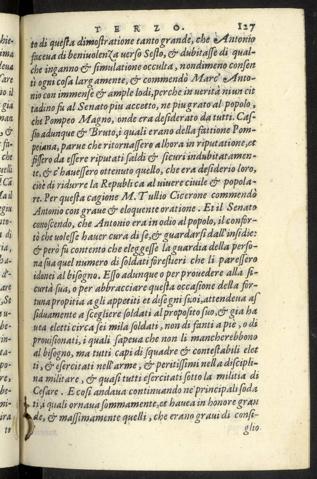 TERZO. 127
to di questa dimostratione tanto grande, che Antonio
faceua di beniuolenza uerso Sesto, & dubitasse di qual-
che inganno & simulatione occulta, nondimeno consen
tì ogni cosa largamente, & commendò Marc' Anto-
nio con immense & ample lodi, perche in uerità niun cit
tadino fu al Senato piu accetto, ne piu grato al popolo,
che Pompeo Magno, onde era desiderato da tutti. Cas-
sio adunque & Bruto, i quali erano della fattione Pom-
peiana, parue che ritornassero alhora in riputatione, et
fussero da essere riputati saldi & sicuri indubitatamen-
te, & c'hauessero ottenuto quello, che era desiderio loro,
cioè di ridurre la Republica al uiuere ciuile & popola-
re. Per questa cagione M. Tullio Cicerone commendò
Antonio con graue & eloquente oratione. Et il Senato
conoscendo, che Antonio era in odio al popolo, il confor-
tò che uolesse hauer cura di se, & guardarsi dall'insidie:
& però fu contento che eleggesse la guardia della perso-
na sua quel numero di soldati forestieri che li paressero
idonei al bisogno. Esso adunque o per prouedere alla si-
curtà sua, o per abbracciare questa occasione della for-
tuna propitia agli appetiti et disegni suoi, attendeua as
siduamente a scegliere soldati al proposito suo, & già ha
uta eletti circa sei mila soldati, non di fanti a piè, o di
prouisionati, i quali sapeua che non li mancherebbono
al bisogno, ma tutti capi di squadre & contestabili elet
ti, & esercitati nell'arme, & peritissimi nella discipli-
na militare, & quasi tutti esercitati sotto la militia di
Cesare. E così andaua continuando ne' principali solda
ti, i quali ornaua sommamente, et haueua in honore gran
de, & massimamente quelli, che erano graui di consi-
glio